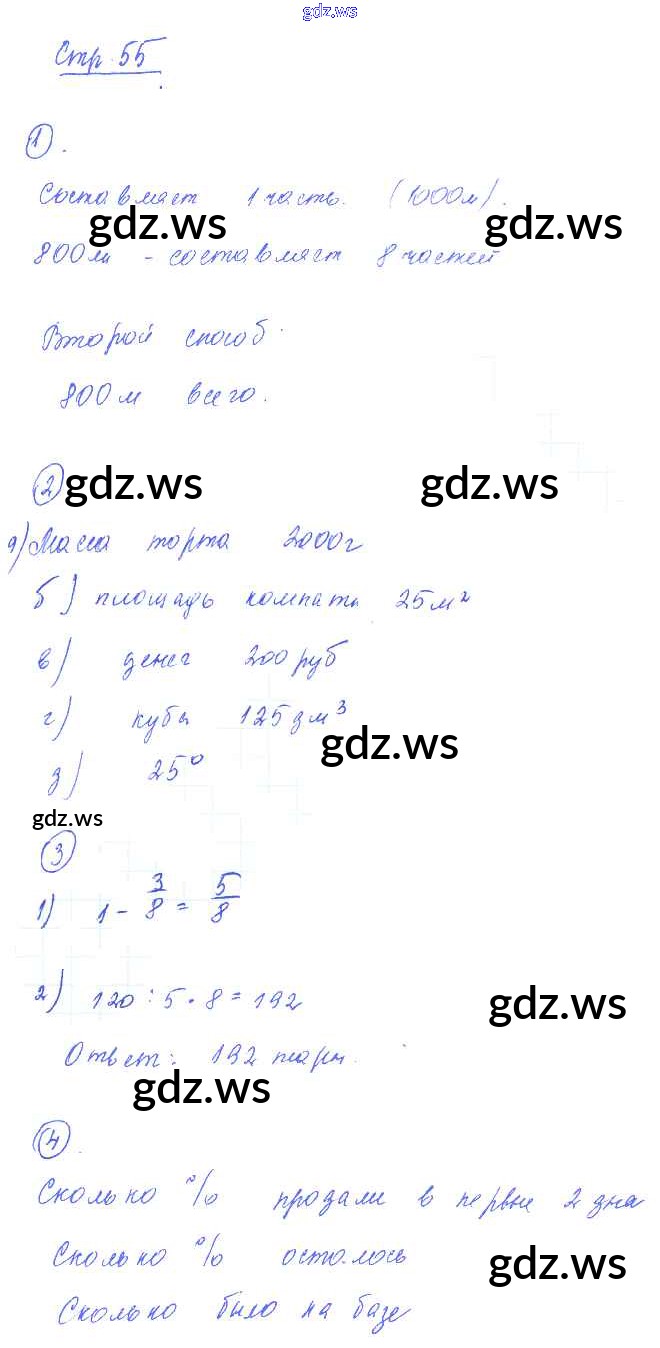 gdz.ws
Стр 55
1.
Составляет 1 часть. (1000м).
gdz.ws gdz.ws
800м - составляет 8 частей
Второй способ.
800м всего.
2 gdz.ws gdz.ws
а) Масса торта 2000г
б) площадь комнаты 25м²
в) денег 200 руб
г) кубы 125 дм³
gdz.ws
д) 25°
gdz.ws
3
1) 1 - 3/8 = 5/8
2) 120 : 5 · 8 = 192
gdz.ws
Ответ: 192 пары.
gdz.ws
4.
Сколько % продали в первые 2 дня
Сколько % осталось
gdz.ws
Сколько было на базе